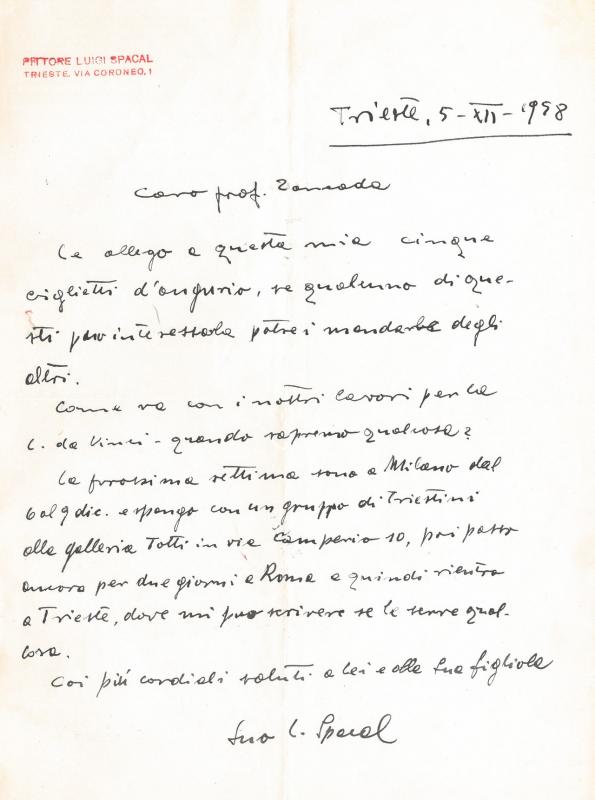 PITTORE LUIGI SPACAL
TRIESTE, VIA CORONEO, 1
Trieste, 5-XII-1958
Caro prof. Zancada
Le allego a questa mia cinque
biglietti d'augurio, se qualcuno di que-
sti può interessarla potrei mandarle degli
altri.
Come va con i nostri lavori per la
L. da Vinci - quando sapremo qualcosa?
La prossima settima sono a Milano dal
6 al 9 dic. espongo con un gruppo di Triestini
alla galleria Totti in via Camperio 10, poi passo
ancora per due giorni a Roma e quindi rientro
a Trieste, dove mi può scrivere se le serve qual-
cosa.
Coi più cordiali saluti a Lei e alla Sua figliola
Suo L. Spacal